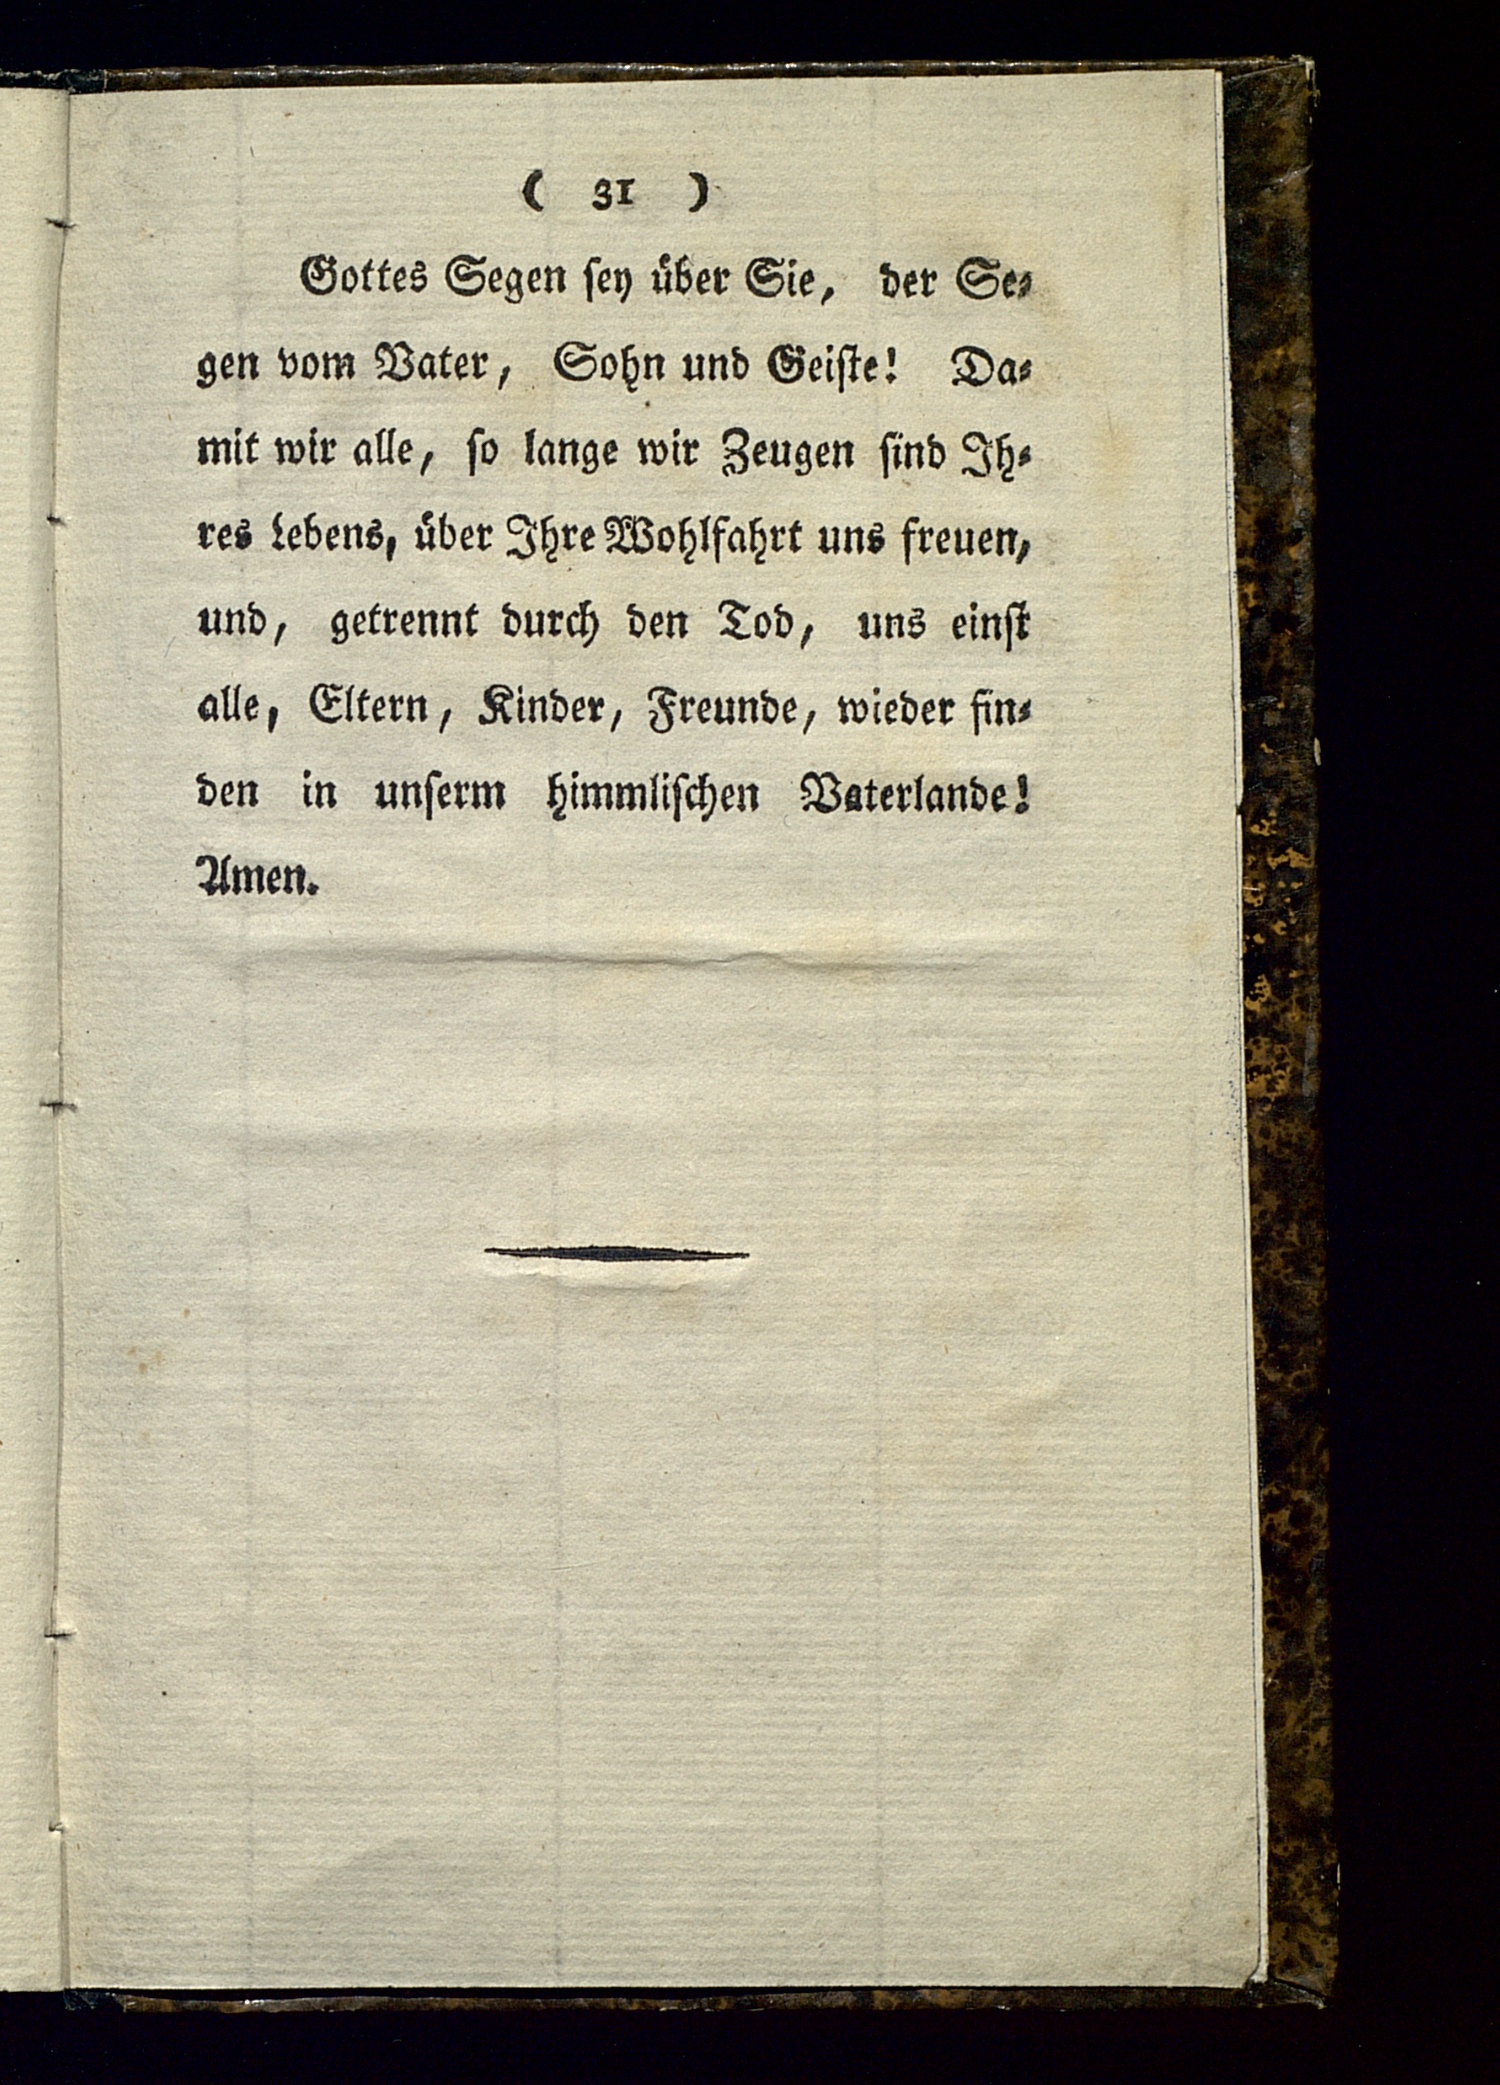 ( 31 )
Gottes Segen ſey über Sie, der Se⸗
gen vom Vater, Sohn und Geiſte! Da⸗
mit wir alle, ſo lange wir Zeugen ſind Ih⸗
res Lebens, über Ihre Wohlfahrt uns freuen,
und, getrennt durch den Tod, uns einſt
alle, Eltern, Kinder, Freunde, wieder fin⸗
den in unſerm himmliſchen Vaterlande!
Amen.